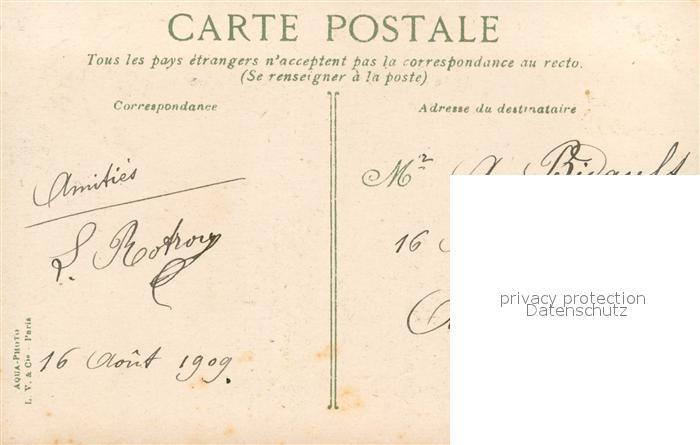 CARTE POSTALE
Tous les pays étrangers n'acceptent pas la correspondance au recto.
(Se renseigner à la poste)
Correspondance
Adresse du destinataire
Amitiés
16 Août 1909.
AQUA-PHOTO
L. V. & Cie - Paris
Mr A. Bidault
16
privacy protection
Datenschutz